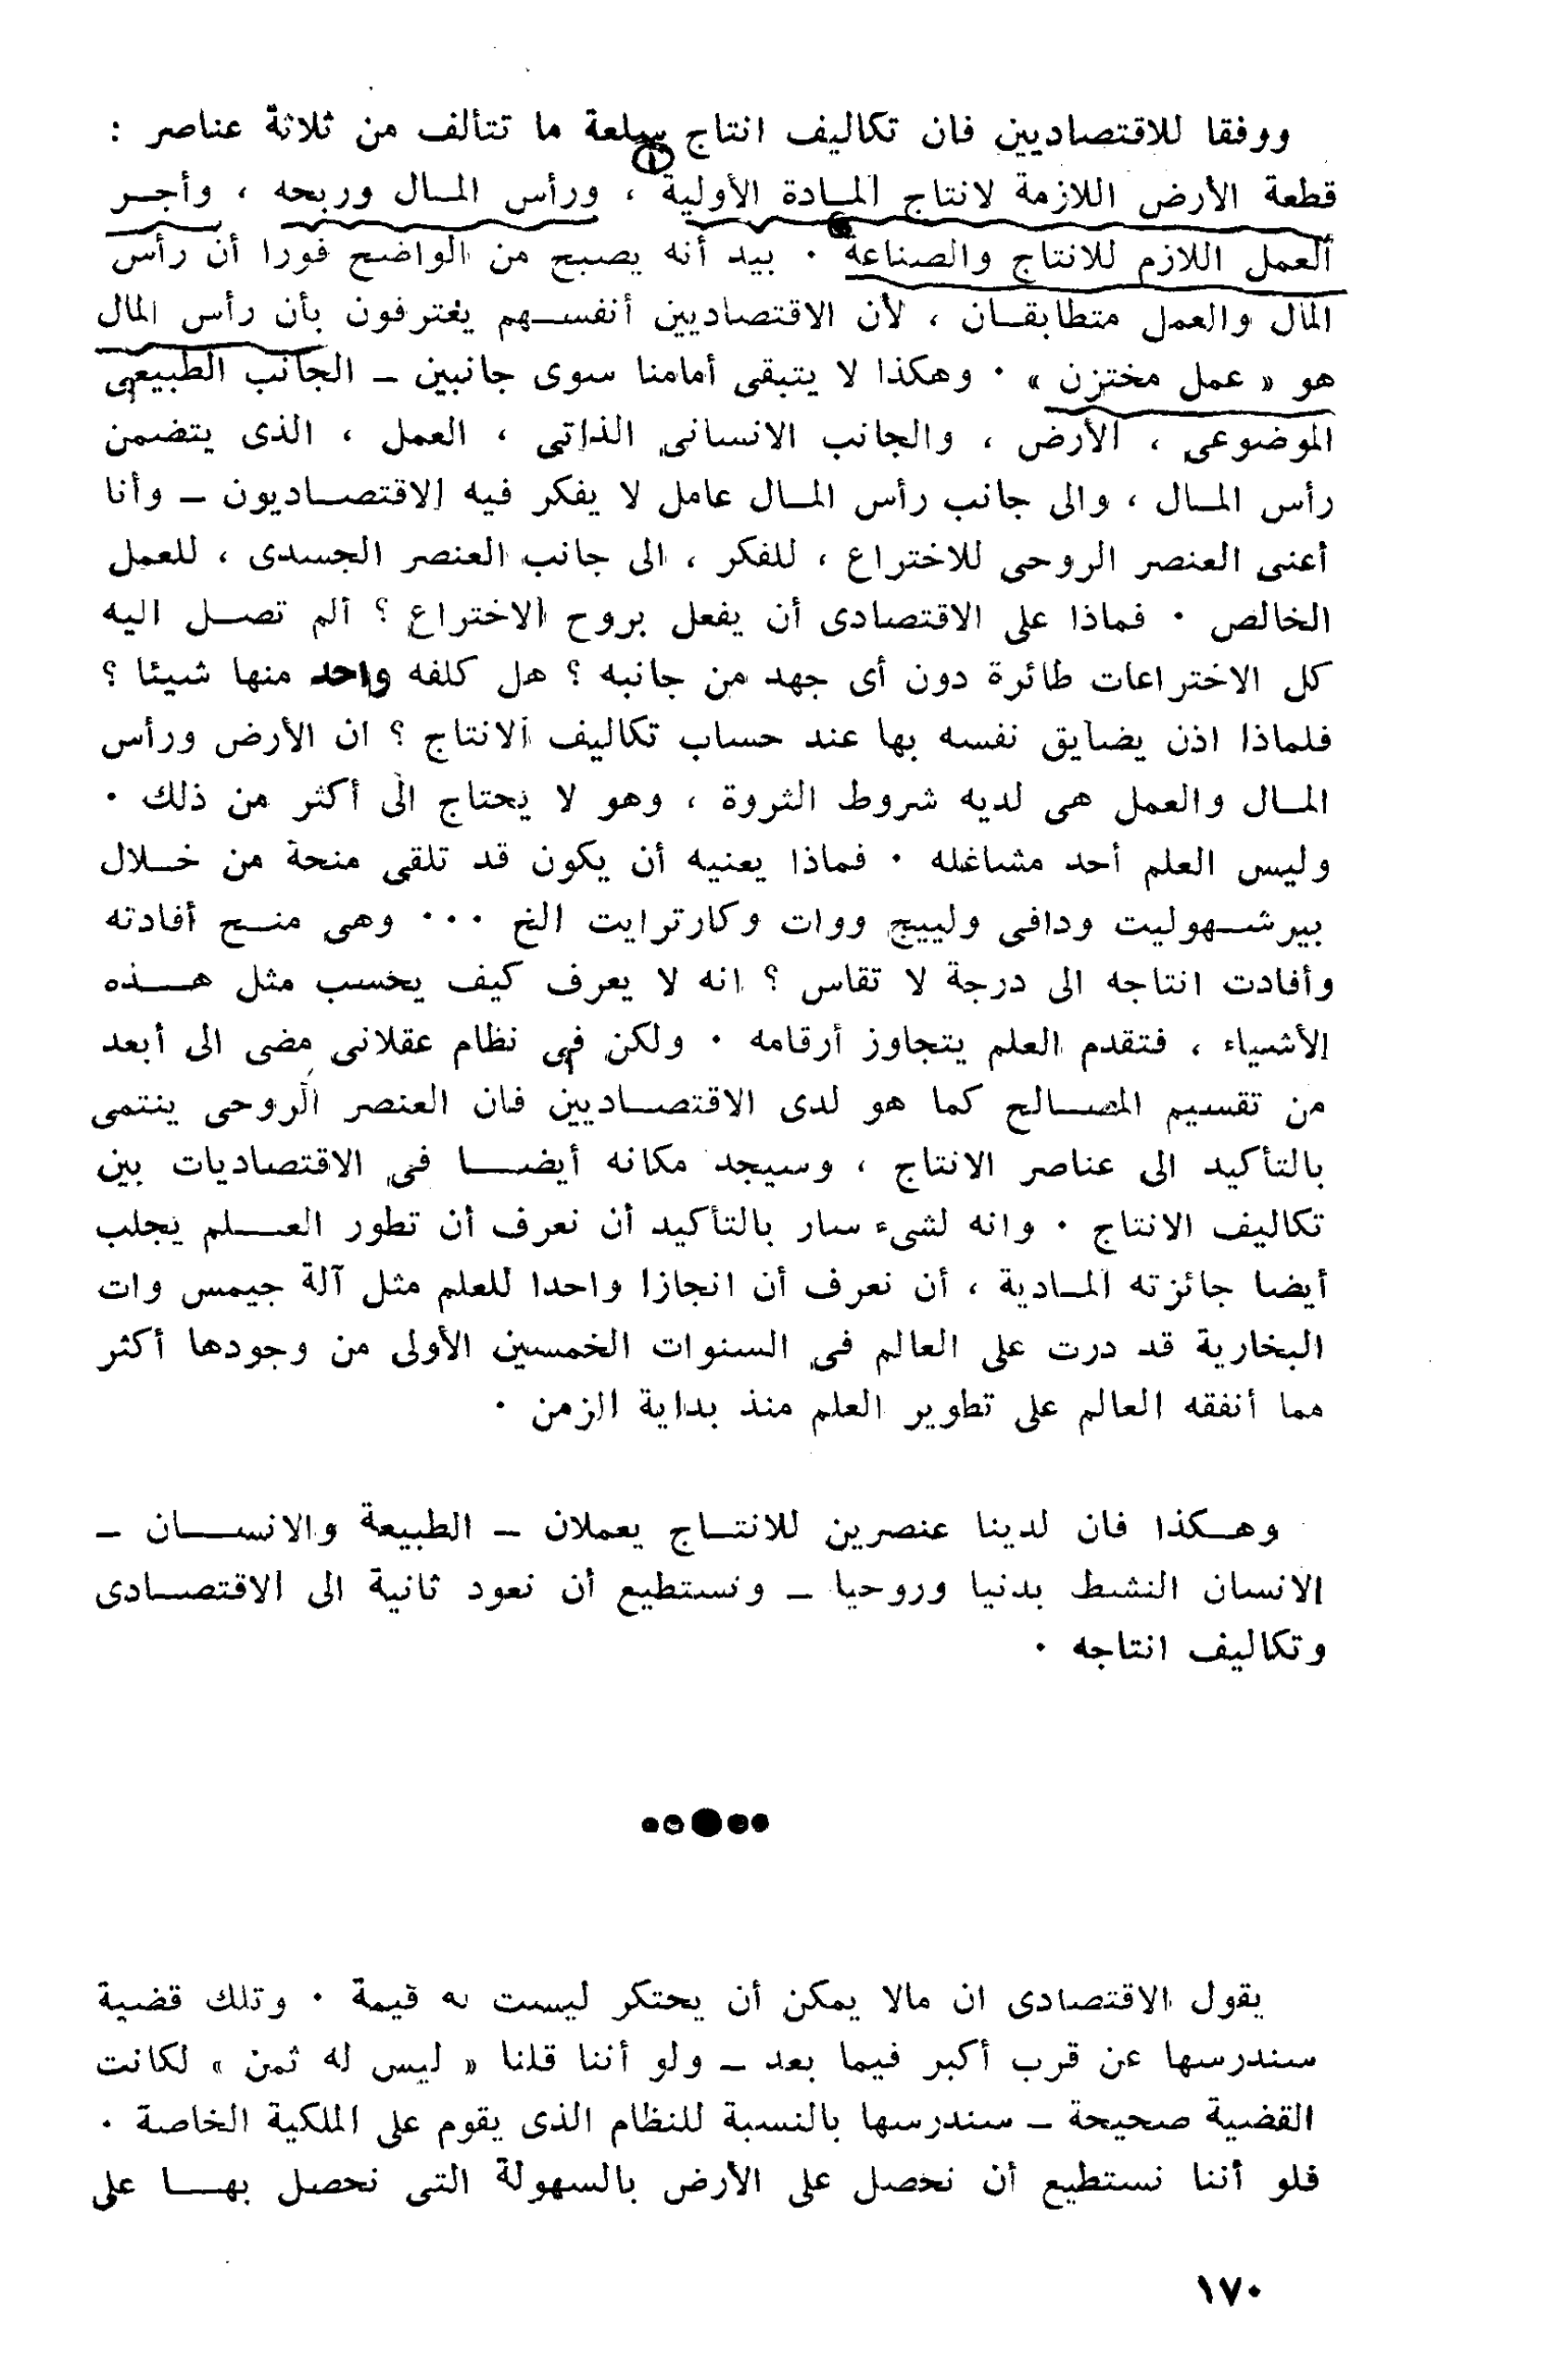 ووفقا للاقتصاديين فان تكاليف انتاج سلعة ما تتألف من ثلاثة عناصر :
قطعة الأرض اللازمة لانتاج المادة الأولية ، ورأس المال وربحه ، وأجر
العمل اللازم للانتاج والصناعة . بيد أنه يصبح من الواضح فورا أن رأس
المال والعمل متطابقان ، لأن الاقتصاديين أنفسهم يعترفون بأن رأس المال
هو « عمل مختزن » . وهكذا لا يتبقى أمامنا سوى جانبين – الجانب الطبيعى
الموضوعى ، الأرض ، والجانب الانسانى الذاتى ، العمل ، الذى يتضمن
رأس المال ، والى جانب رأس المال عامل لا يفكر فيه الاقتصاديون – وأنا
أعنى العنصر الروحى للاختراع ، للفكر ، الى جانب العنصر الجسدى ، للعمل
الخالص . فماذا على الاقتصادى أن يفعل بروح الاختراع ؟ ألم تصل اليه
كل الاختراعات طائرة دون أى جهد من جانبه ؟ هل كلفه واحد منها شيئا ؟
فلماذا اذن يضايق نفسه بها عند حساب تكاليف الانتاج ؟ ان الأرض ورأس
المال والعمل هى لديه شروط الثروة ، وهو لا يحتاج الى أكثر من ذلك .
وليس العلم أحد مشاغله . فماذا يعنيه أن يكون قد تلقى منحة من خلال
بيرشهوليت ودافى ولييج ووات وكارترايت الخ ... وهى منح أفادته
وأفادت انتاجه الى درجة لا تقاس ؟ انه لا يعرف كيف يحسب مثل هذه
الأشياء ، فتقدم العلم يتجاوز أرقامه . ولكن فى نظام عقلانى مضى الى أبعد
من تقسيم المصالح كما هو لدى الاقتصاديين فان العنصر الروحى ينتمى
بالتأكيد الى عناصر الانتاج ، وسيجد مكانه أيضا فى الاقتصاديات بين
تكاليف الانتاج . وانه لشىء سار بالتأكيد أن نعرف أن تطور العلم يجلب
أيضا جائزته المادية ، أن نعرف أن انجازا واحدا للعلم مثل آلة جيمس وات
البخارية قد درت على العالم فى السنوات الخمسين الأولى من وجودها أكثر
مما أنفقه العالم على تطوير العلم منذ بداية الزمن .
وهكذا فان لدينا عنصرين للانتاج يعملان – الطبيعة والانسان –
الانسان النشط بدنيا وروحيا – ونستطيع أن نعود ثانية الى الاقتصادى
وتكاليف انتاجه .
يقول الاقتصادى ان مالا يمكن أن يحتكر ليست له قيمة . وتلك قضية
سندرسها عن قرب أكبر فيما بعد – ولو أننا قلنا « ليس له ثمن » لكانت
القضية صحيحة – سندرسها بالنسبة للنظام الذى يقوم على الملكية الخاصة .
فلو أننا نستطيع أن نحصل على الأرض بالسهولة التى نحصل بها على
١٧٠